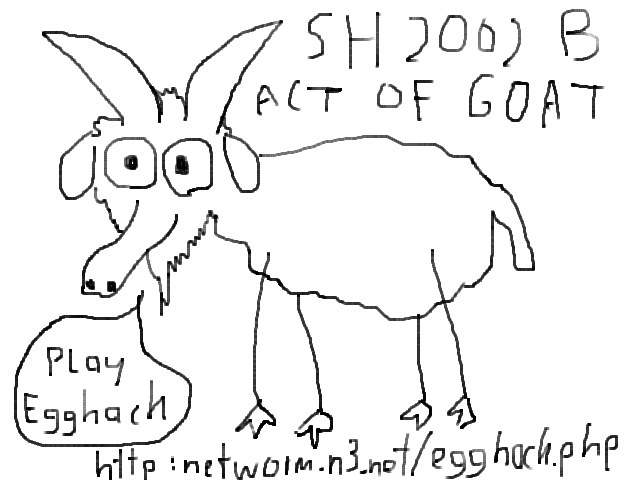 SH 2002 B
ACT OF GOAT
Play
Egghack
http:netwoim.n3.not/egghack.php